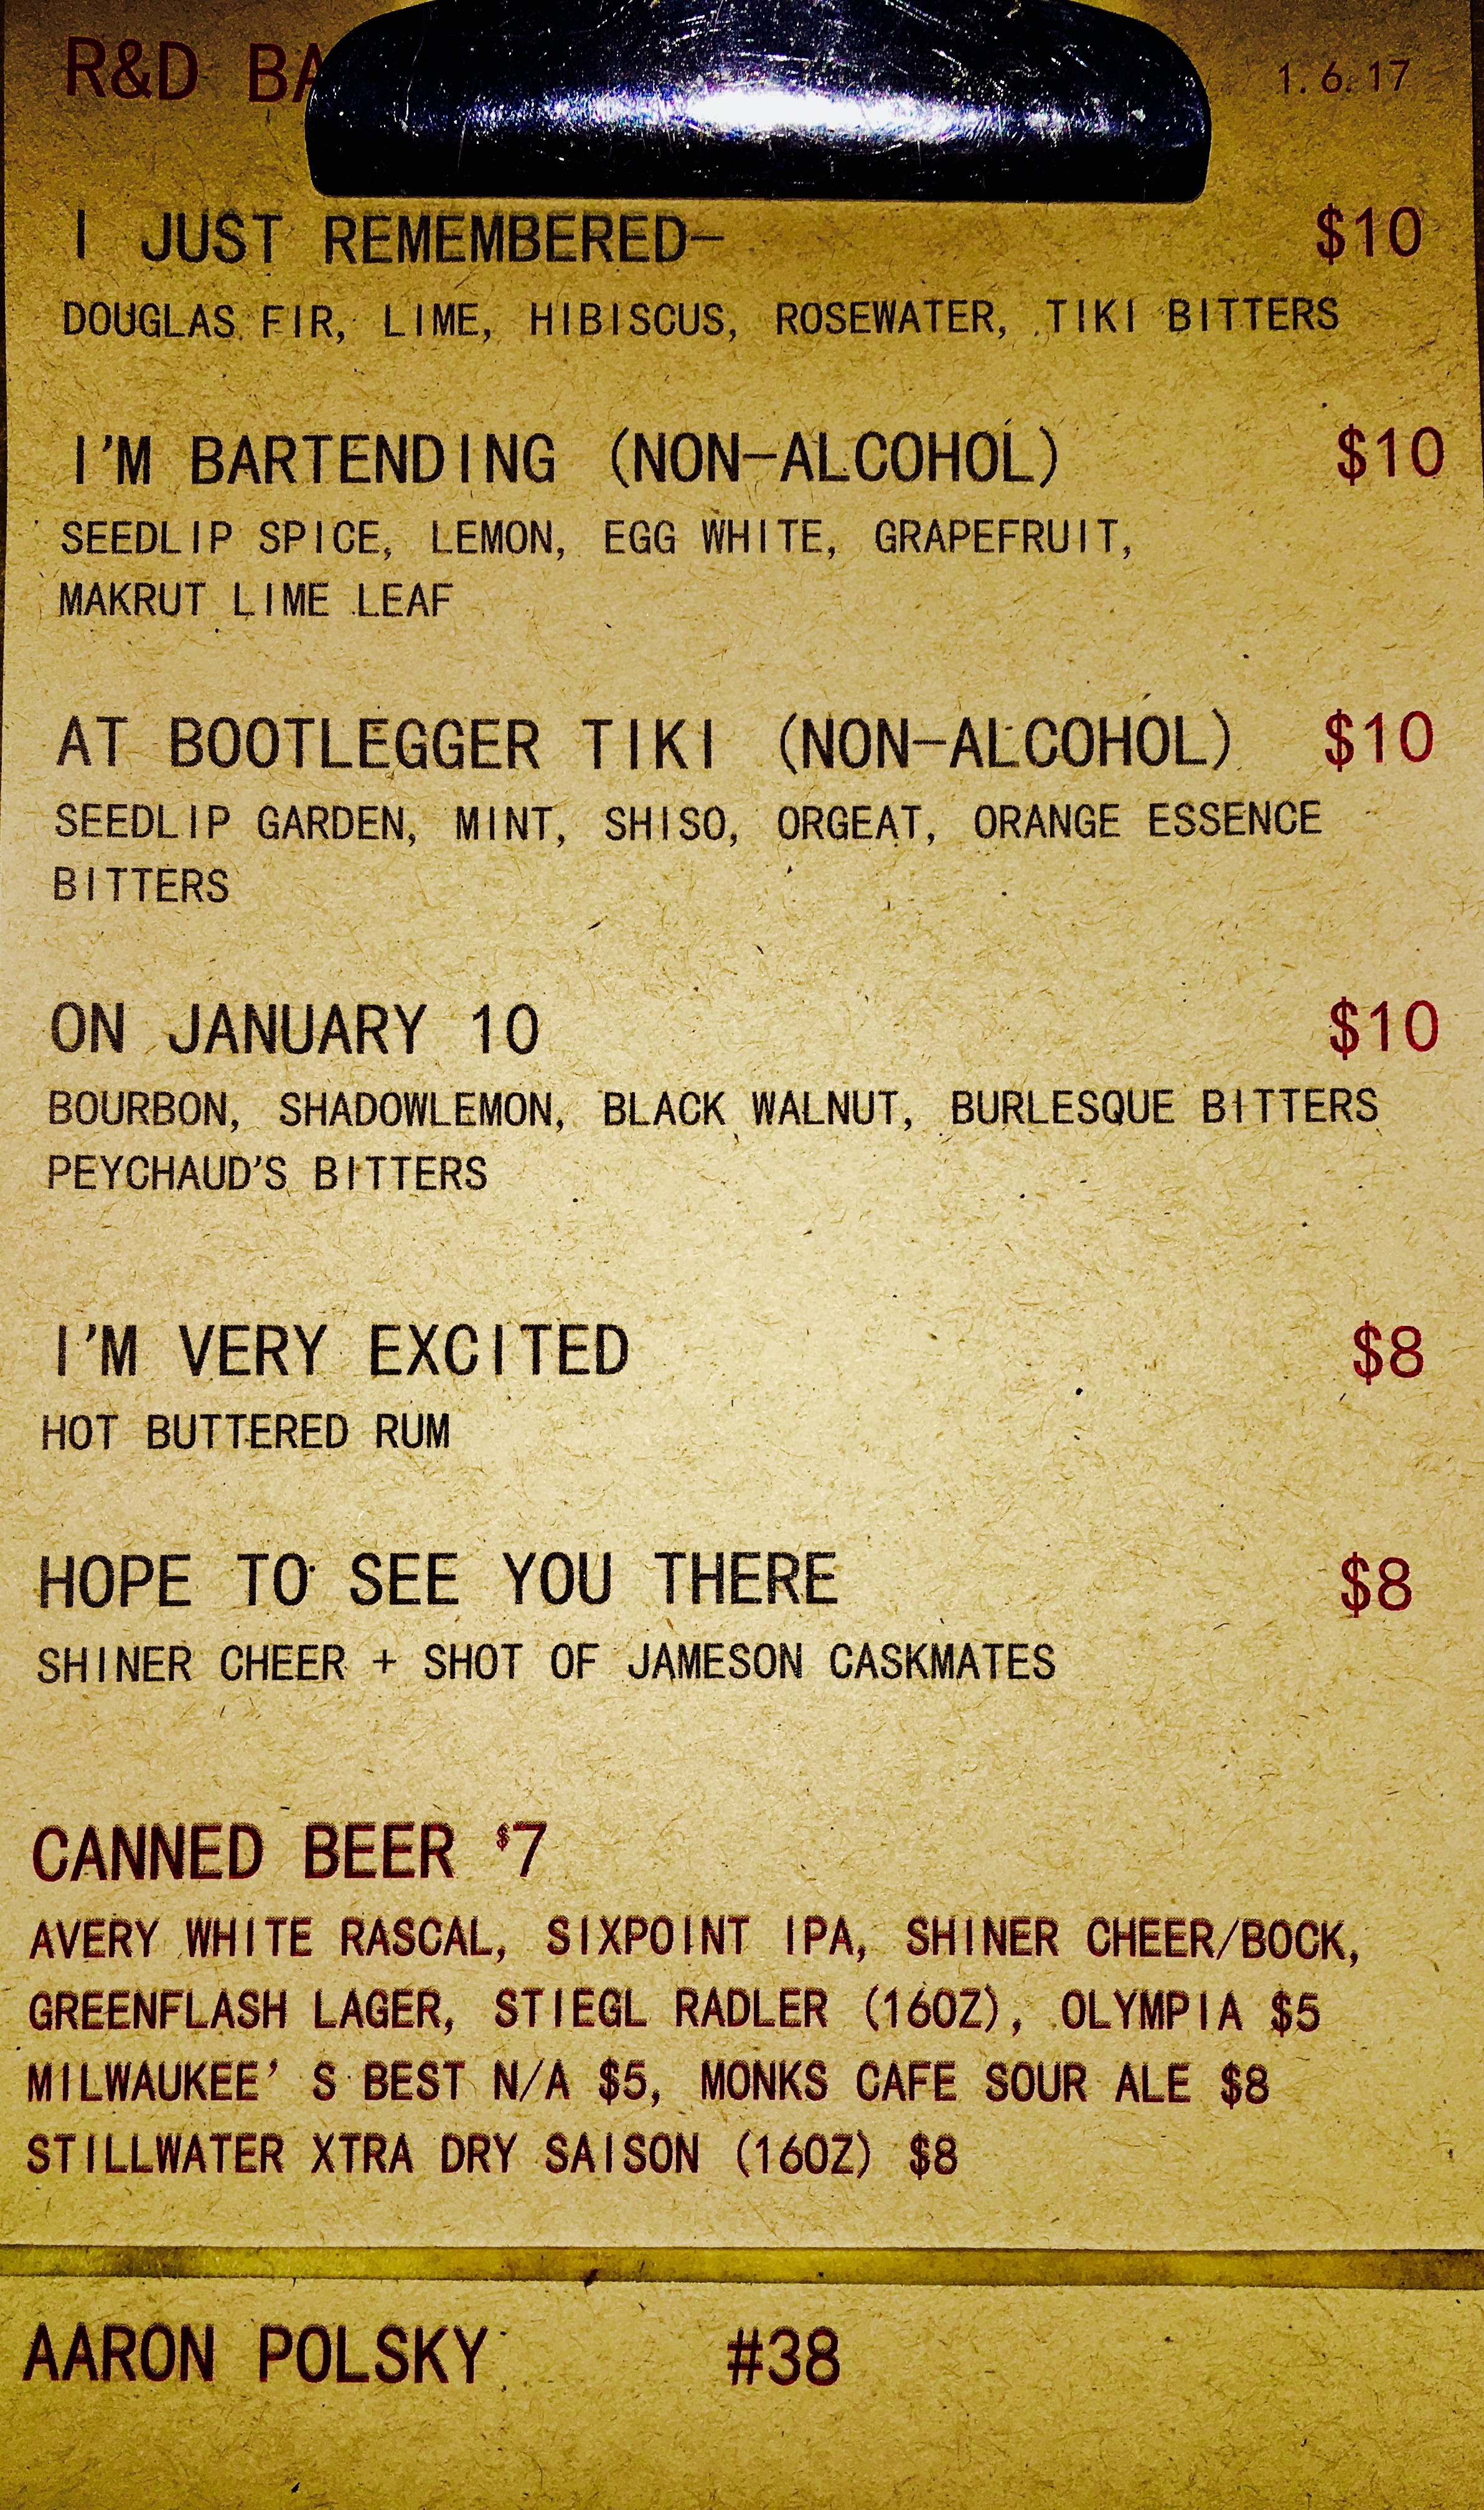 R&D BA 1.6.17
I JUST REMEMBERED— $10
DOUGLAS FIR, LIME, HIBISCUS, ROSEWATER, TIKI BITTERS
I'M BARTENDING (NON-ALCOHOL) $10
SEEDLIP SPICE, LEMON, EGG WHITE, GRAPEFRUIT,
MAKRUT LIME LEAF
AT BOOTLEGGER TIKI (NON-ALCOHOL) $10
SEEDLIP GARDEN, MINT, SHISO, ORGEAT, ORANGE ESSENCE
BITTERS
ON JANUARY 10 $10
BOURBON, SHADOWLEMON, BLACK WALNUT, BURLESQUE BITTERS
PEYCHAUD'S BITTERS
I'M VERY EXCITED $8
HOT BUTTERED RUM
HOPE TO SEE YOU THERE $8
SHINER CHEER + SHOT OF JAMESON CASKMATES
CANNED BEER $7
AVERY WHITE RASCAL, SIXPOINT IPA, SHINER CHEER/BOCK,
GREENFLASH LAGER, STIEGL RADLER (16OZ), OLYMPIA $5
MILWAUKEE' S BEST N/A $5, MONKS CAFE SOUR ALE $8
STILLWATER XTRA DRY SAISON (16OZ) $8
AARON POLSKY #38